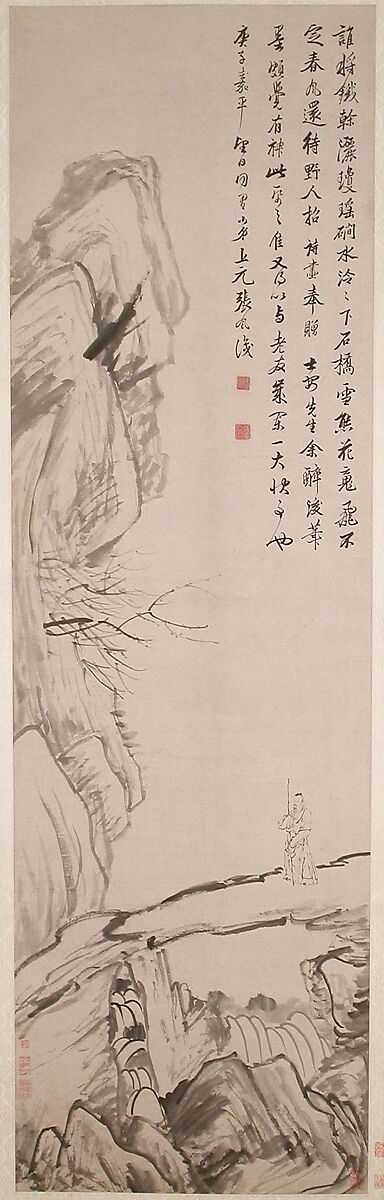 誰将鐵幹灑瓊瑤磵水泠〻下石橋雪態花魂飛不
定春風還待野人招詩畫奉贈士先生余醉後筆
墨頗覺有神此之佳又以与老友一大快事也
庚子嘉平望日同里小弟上元張風識